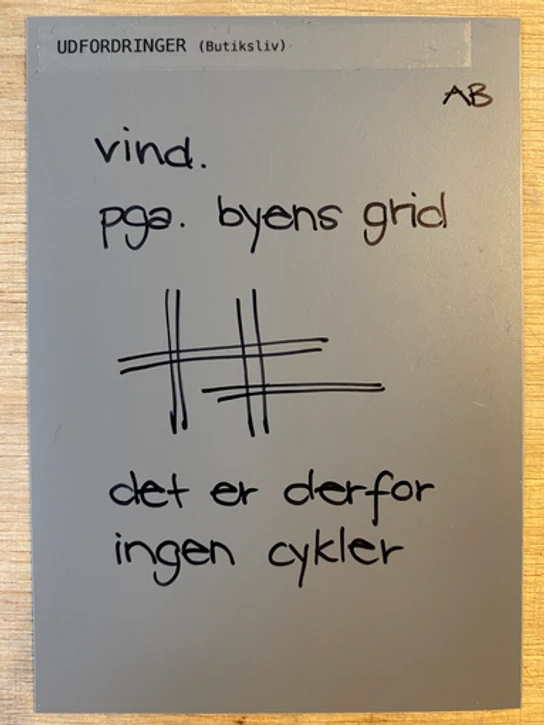 UDFORDRINGER (Butiksliv)
AB
vind.
pga. byens grid
det er derfor
ingen cykler